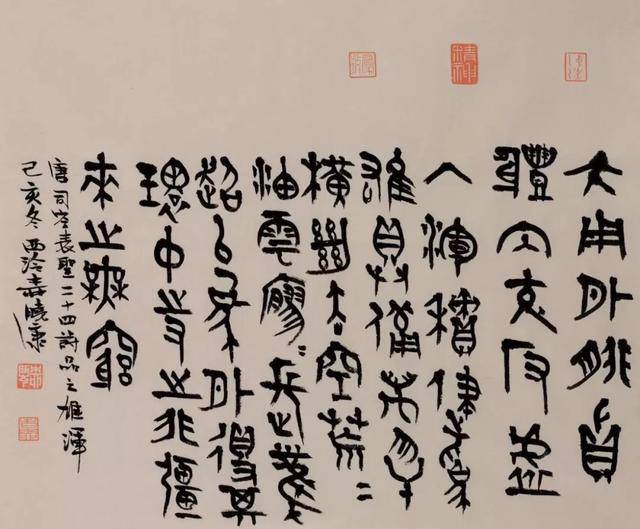 精神
大用外腓真
體內充反虛
入渾積健為
雄具備萬物
橫絕太空荒〻
油雲寥〻長風
超以象外得其
環中持之非彊
來之無窮
唐司空表聖二十四詩品之雄渾
己亥冬西泠壽曉康